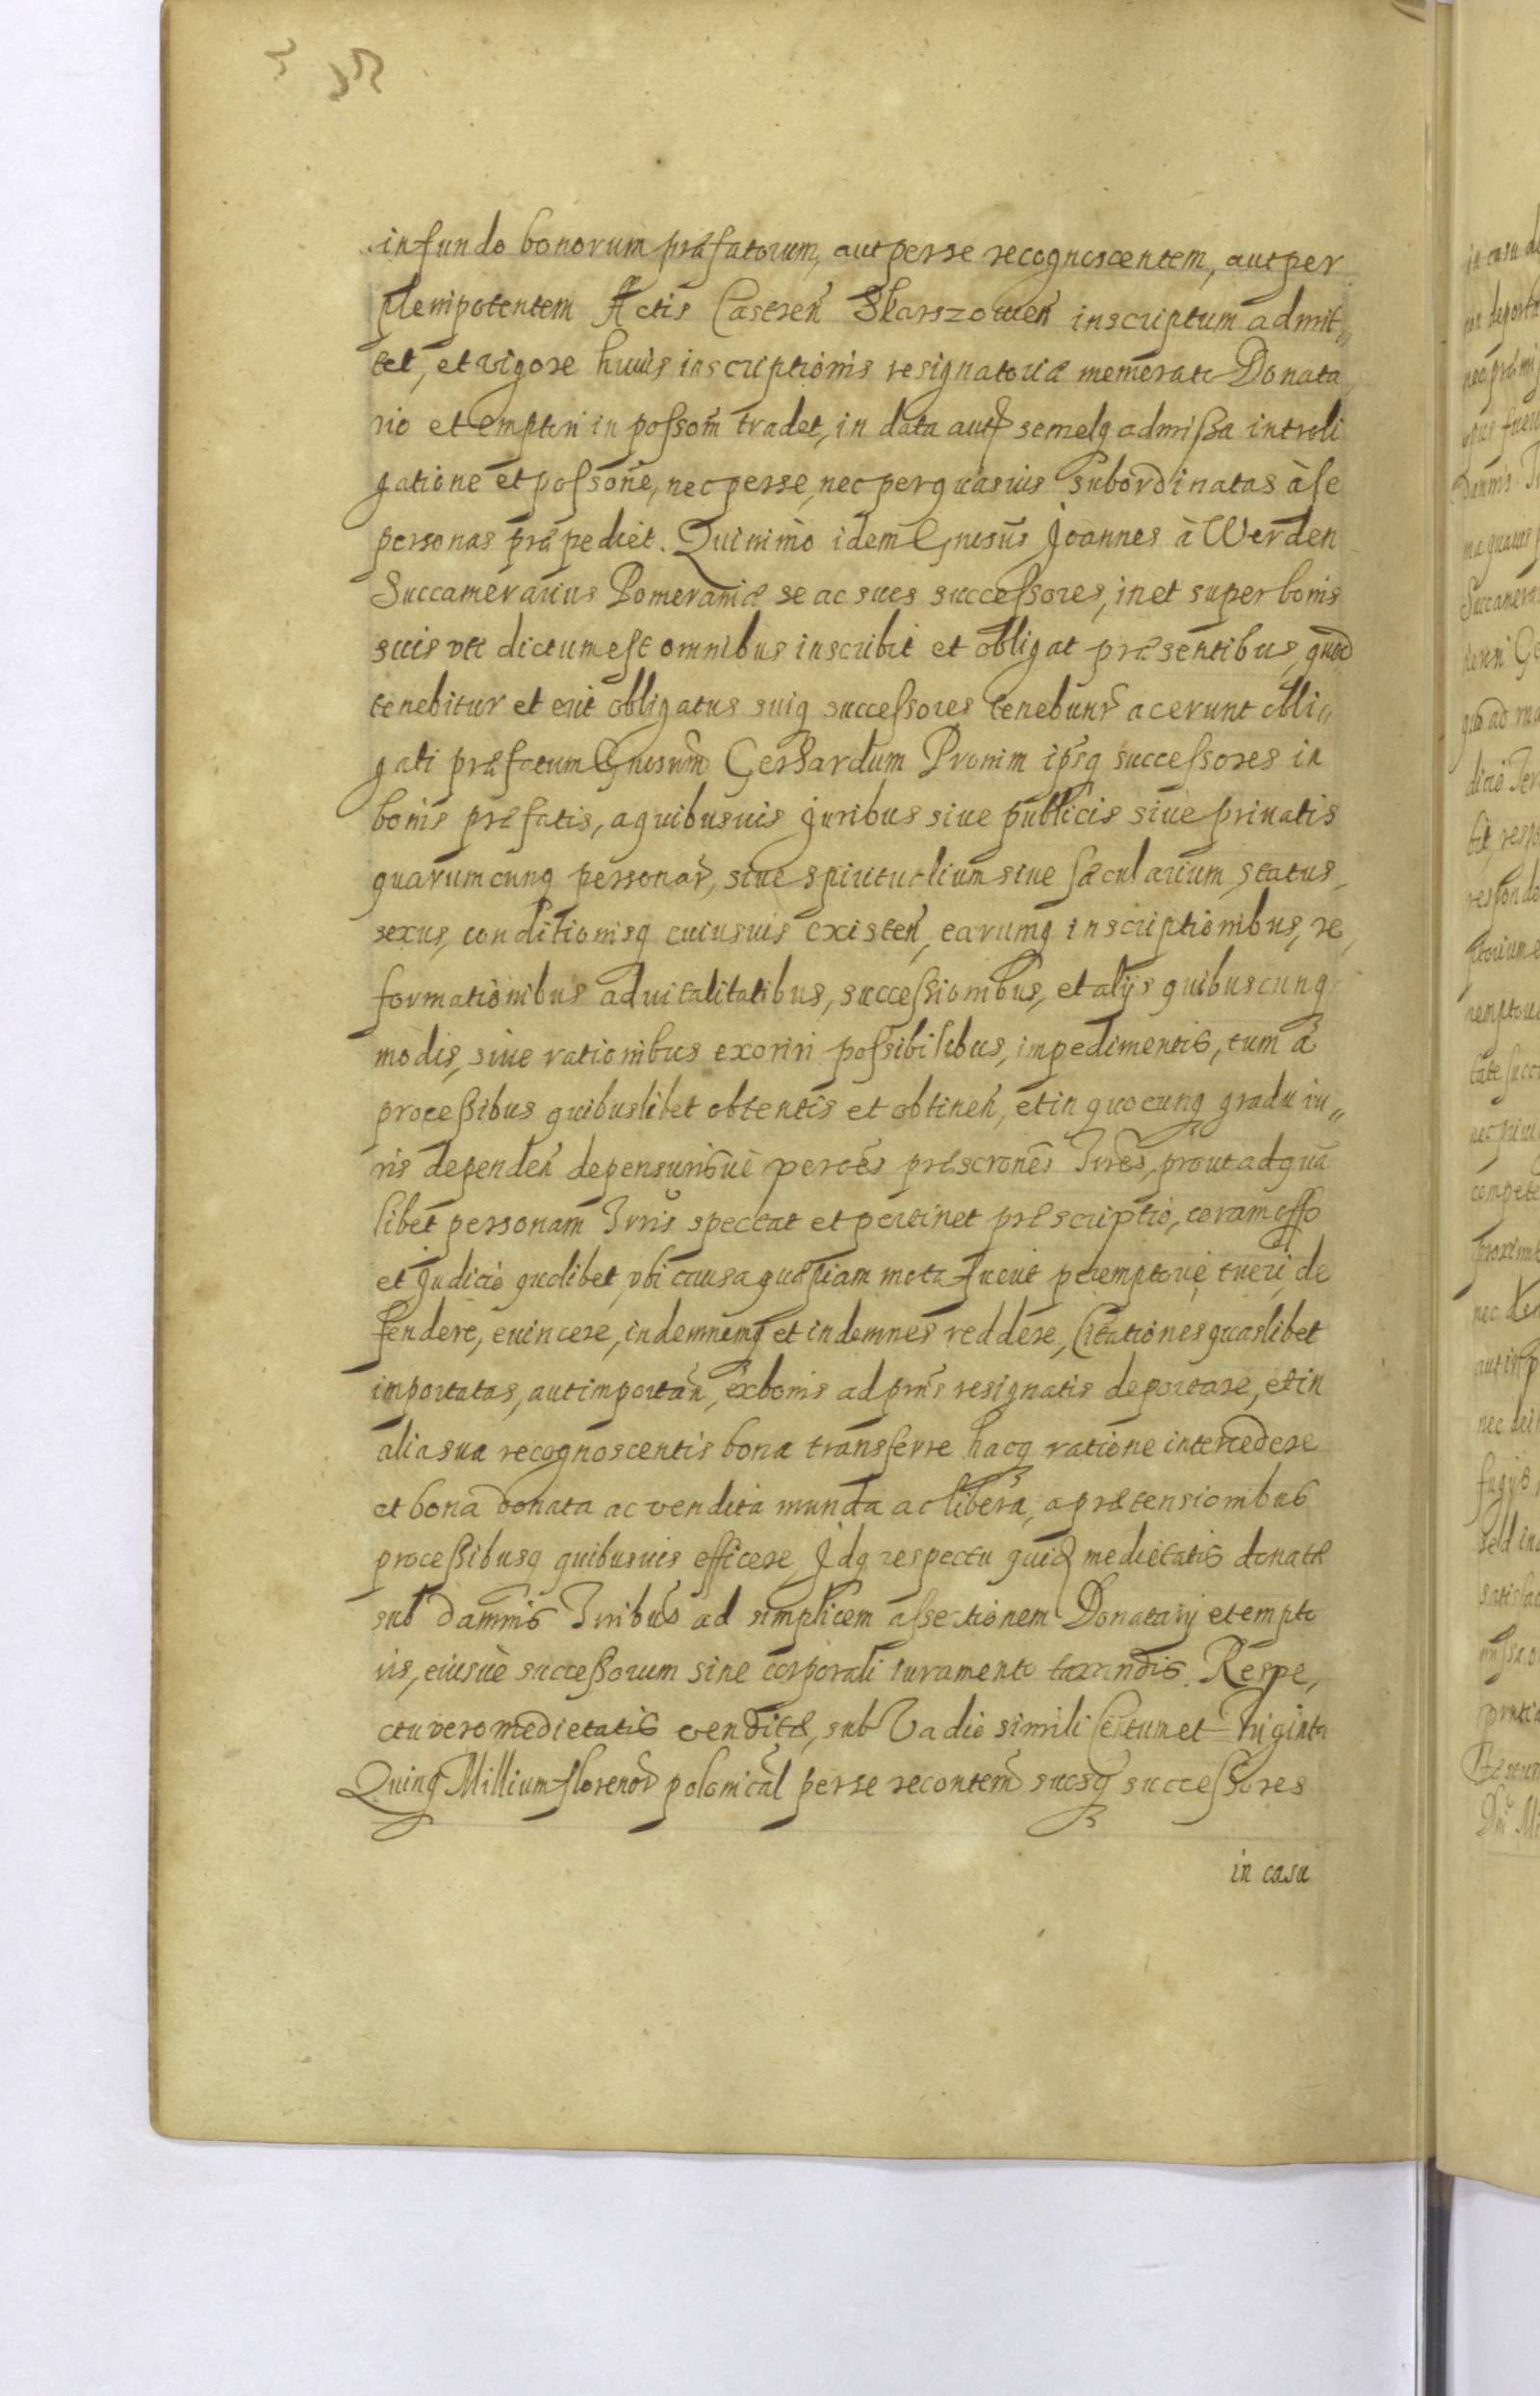 in fundo bonorum præfatorum, aut per se recognoscentem, aut per
plenipotentem Actis Castren Skarszowen inscriptum admit„
tet, et vigore huius inscriptionis resignatoriæ memorato Donata
rio et emptori in possom tradet, in data autem semelq admissa intromi
gatione et possone, nec per se, nec per quasuis subordinatas à se
personas præpediet. Quinimò idem Gnosus Joannes à Werden
Succamerarius Pomeraniæ se ac suos successores, in et super bonis
suis vti dictum est omnibus inscribit et obligat præsentibus, quod
tenebitur et erit obligatus suiq successores tenebunr ac erunt obli„
gati præfatum Gnosum Gerhardum Pronin ipsq successores in
bonis præfatis, a quibusuis juribus siue publicis siue priuatis
quarumcunq personar, siue spiritualium siue sæcularium, status,
sexus, conditionisq cuiusuis existen, earumq inscriptionibus, re,
formationibus aduitalitatibus, successionibus, et alijs quibuscunq
modis, siue rationibus exoriri possibilibus, impedimentis, tum à
processibus quibuslibet obtentis et obtinen, et in quocunq gradu iu„
ris dependen depensurisuè per præscrones Jures, prout ad quā
libet personam Juris spectat et pertinet præscriptio, coram offo
et Judicio quolibet, vbi causa quæpiam mota fuerit peremptorie, tueri, de
fendere, euincere, indemnemq et indemnes reddere, Citationes quaslibet
importatas, aut importan, ex bonis ad prns resignatis deportare, et in
alia sua recognoscentis bona transferre hacq ratione intercedere
et bona donata ac vendita munda ac libera, a prætensionibus
processibusq quibusuis efficere Jdq respectu quidem medietatis donatæ
sub damnis Jribus ad simplicem assertionem Donatarij et empto
ris, eiusuè successorum sine corporali iuramento taxandis. Respe,
ctu vero medietatis venditæ, sub Vadio simili Centum et Triginta
Quinq Millium florenor polonical per se recontem suosq successores
in casu